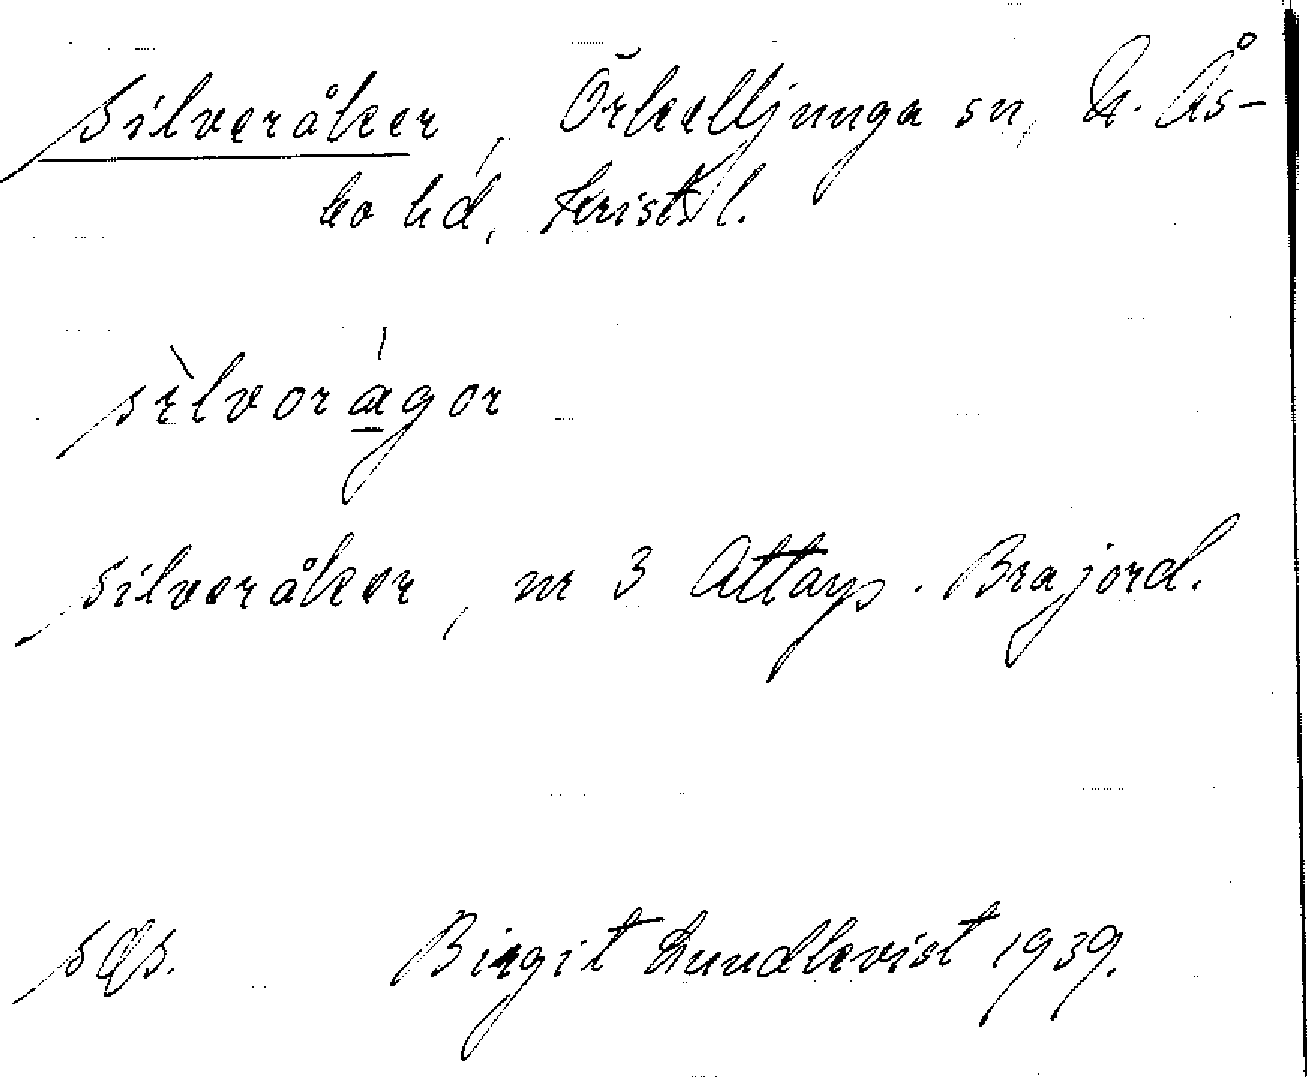 Silveråker, Örkelljunga sn, N. Ås-
bo hd, Krist. l.
sìlvorágor
Silveråker, nr 3 Attarp. Bra jord.
Birgit Lundkvist 1939.